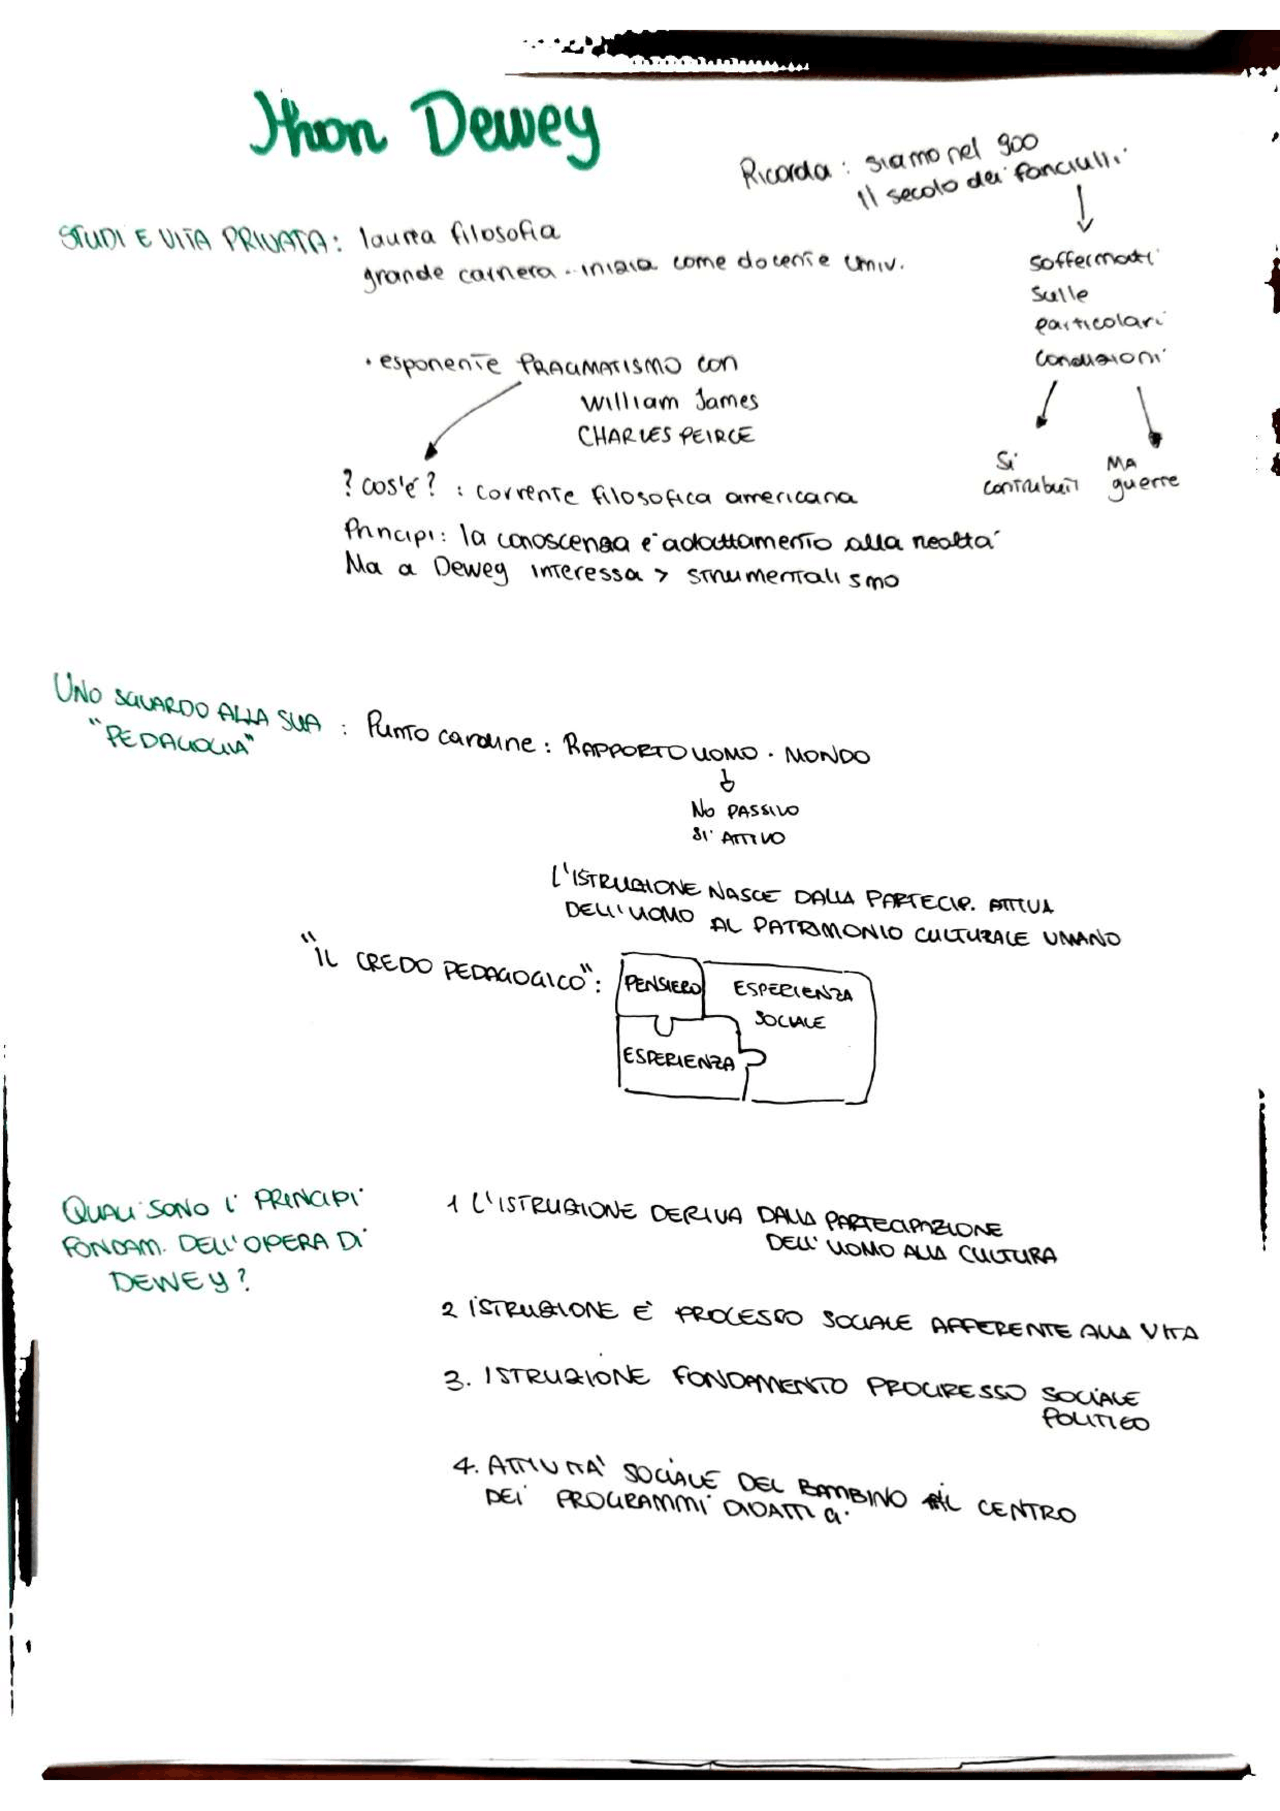 Jhon Dewey
Ricorda: siamo nel 900
Il secolo dei fanciulli
STUDI E VITA PRIVATA: laurea filosofia
grande carriera - inizia come docente univ.
Soffermati
sulle
particolari
condizioni
Si contributi
MA guerre
• esponente PRAGMATISMO con
William James
CHARLES PEIRCE
? cos'è? : corrente filosofica americana
Principi: la conoscenza è adattamento alla realtà
Ma a Dewey interessa > strumentalismo
UNO SGUARDO ALLA SUA
"PEDAGOGIA"
: Punto cardine: RAPPORTO UOMO - MONDO
NO PASSIVO
SI' ATTIVO
L'ISTRUZIONE NASCE DALLA PARTECIP. ATTIVA
DELL'UOMO AL PATRIMONIO CULTURALE UMANO
"IL CREDO PEDAGOGICO":
PENSIERO
ESPERIENZA
SOCIALE
ESPERIENZA
QUALI SONO I PRINCIPI
FONDAM. DELL'OPERA DI
DEWEY?
1 L'ISTRUZIONE DERIVA DALLA PARTECIPAZIONE
DELL'UOMO ALLA CULTURA
2 ISTRUZIONE E' PROCESSO SOCIALE AFFERENTE ALLA VITA
3. ISTRUZIONE FONDAMENTO PROGRESSO SOCIALE
POLITICO
4. ATTIVITA' SOCIALE DEL BAMBINO AL CENTRO
DEI PROGRAMMI DIDATTICI